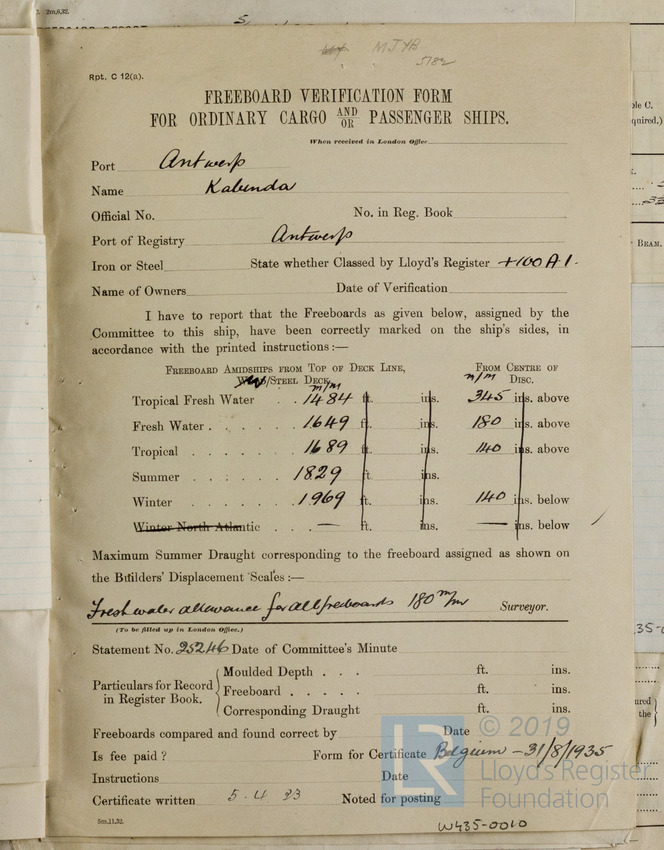 2m,6,32.
MJYB
5182
Rpt. C 12(a).
FREEBOARD VERIFICATION FORM
FOR ORDINARY CARGO AND/OR PASSENGER SHIPS.
When received in London Office
Port Antwerp
Name Kabinda
Official No. No. in Reg. Book
Port of Registry Antwerp
Iron or Steel State whether Classed by Lloyd's Register +100 A1.
Name of Owners Date of Verification
I have to report that the Freeboards as given below, assigned by the
Committee to this ship, have been correctly marked on the ship's sides, in
accordance with the printed instructions:—
Freeboard Amidships from Top of Deck Line, From Centre of
/Steel Deck. m/m m/m Disc.
Tropical Fresh Water . . 1484 ft. ins. 345 ins. above
Fresh Water . . . . . . 1649 ft. ins. 180 ins. above
Tropical . . . . . . 1689 ft. ins. 140 ins. above
Summer . . . . . . 1829 ft. ins.
Winter . . . . . . 1969 ft. ins. 140 ins. below
Winter North Atlantic . . . — ft. ins. — ins. below
Maximum Summer Draught corresponding to the freeboard assigned as shown on
the Builders' Displacement Scales:—
Fresh water allowance for all freeboards 180 m/m Surveyor.
(To be filled up in London Office.)
Statement No. 25246 Date of Committee's Minute
Particulars for Record in Register Book.
Moulded Depth . . . ft. ins.
Freeboard . . . . . ft. ins.
Corresponding Draught ft. ins.
Freeboards compared and found correct by Date
Is fee paid ? Form for Certificate Belgium - 31/8/1935
Instructions Date
Certificate written 5.4.33 Noted for posting
5m,11,32.
W435-0010
© 2019
LR
Lloyd's Register
Foundation
ble C.
quired.)
Beam.
ured
the